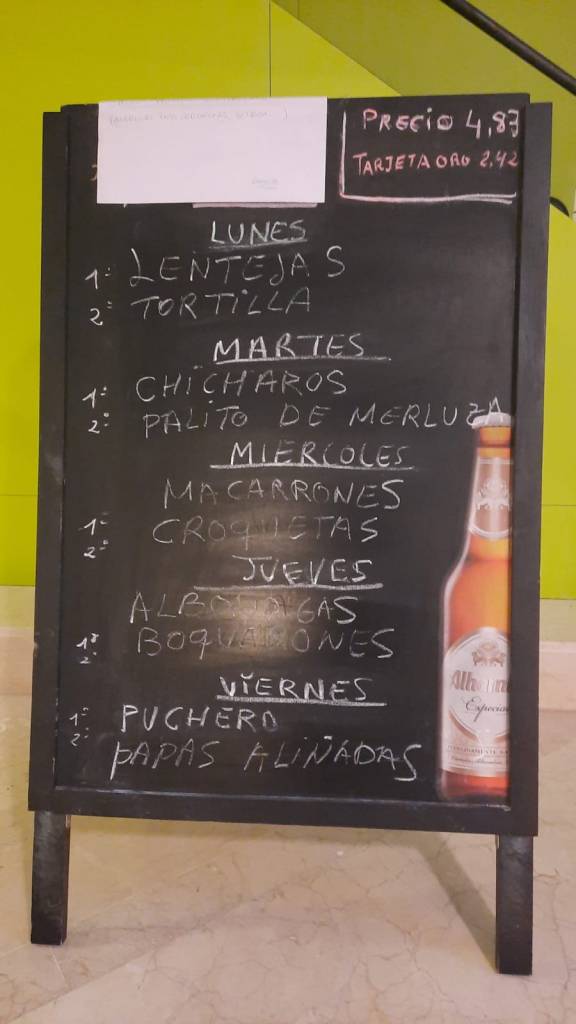 PRECIO 4,87
TARJETA ORO 2,42
LUNES
1º LENTEJAS
2º TORTILLA
MARTES
1º CHICHAROS
2º PALITO DE MERLUZA
MIERCOLES
MACARRONES
1º CROQUETAS
2º
JUEVES
ALBONDIGAS
1º BOQUARONES
2º
VIERNES
1º PUCHERO
2º PAPAS ALIÑADAS
Especial